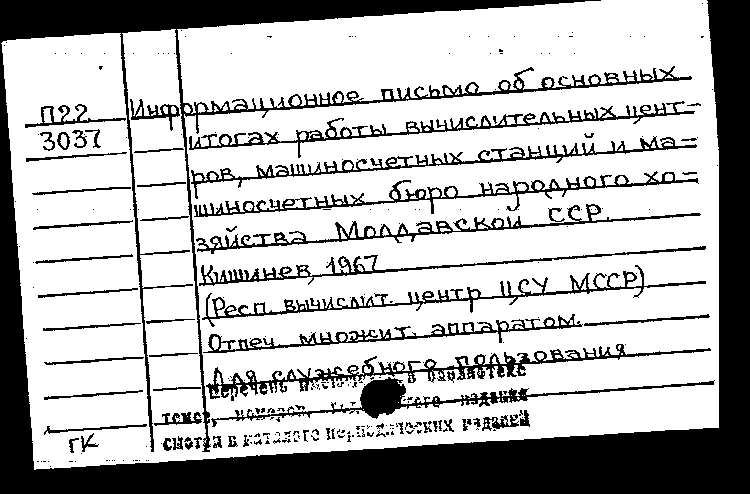 П22 Информационное письмо об основных
3037 итогах работы вычислительных цент-
ров, машиносчетных станций и ма=
шиносчетных бюро народного хо=
зяйства Молдавской ССР.
Кишинев, 1967
(Респ. вычислит. центр ЦСУ МССР)
Отпеч. множит. аппаратом.
Для служебного пользования
Перечень в библиотеке
томов, номеров, издания
ГК смотри в каталоге периодических изданий